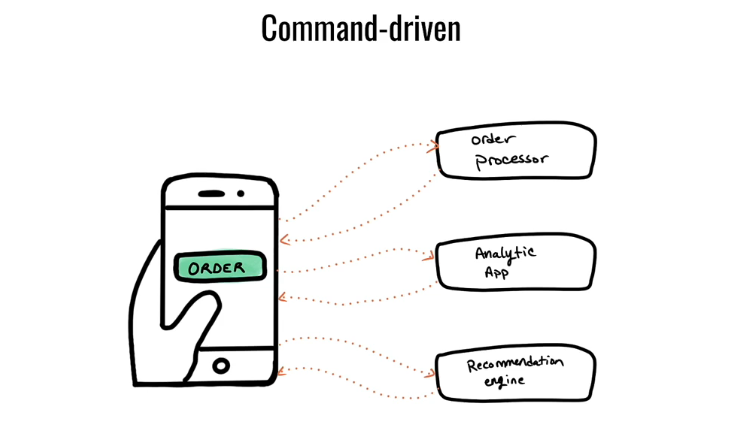 Command-driven
Order
Processor
ORDER
Analytic
App
Recommendation
engine